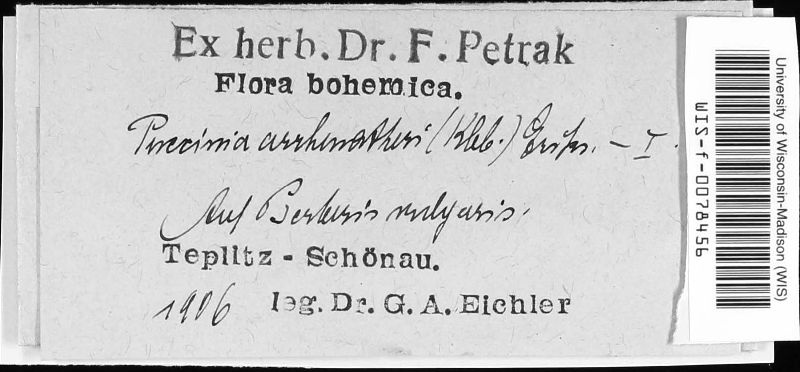 Ex herb. Dr. F. Petrak
Flora bohemica.
Puccinia arrhenatheri (Kleb.) Eriks. – I.
Auf Berberis vulgaris.
Teplitz - Schönau.
1906 leg. Dr. G. A. Eichler
University of Wisconsin-Madison (WIS)
WIS-f-0078456